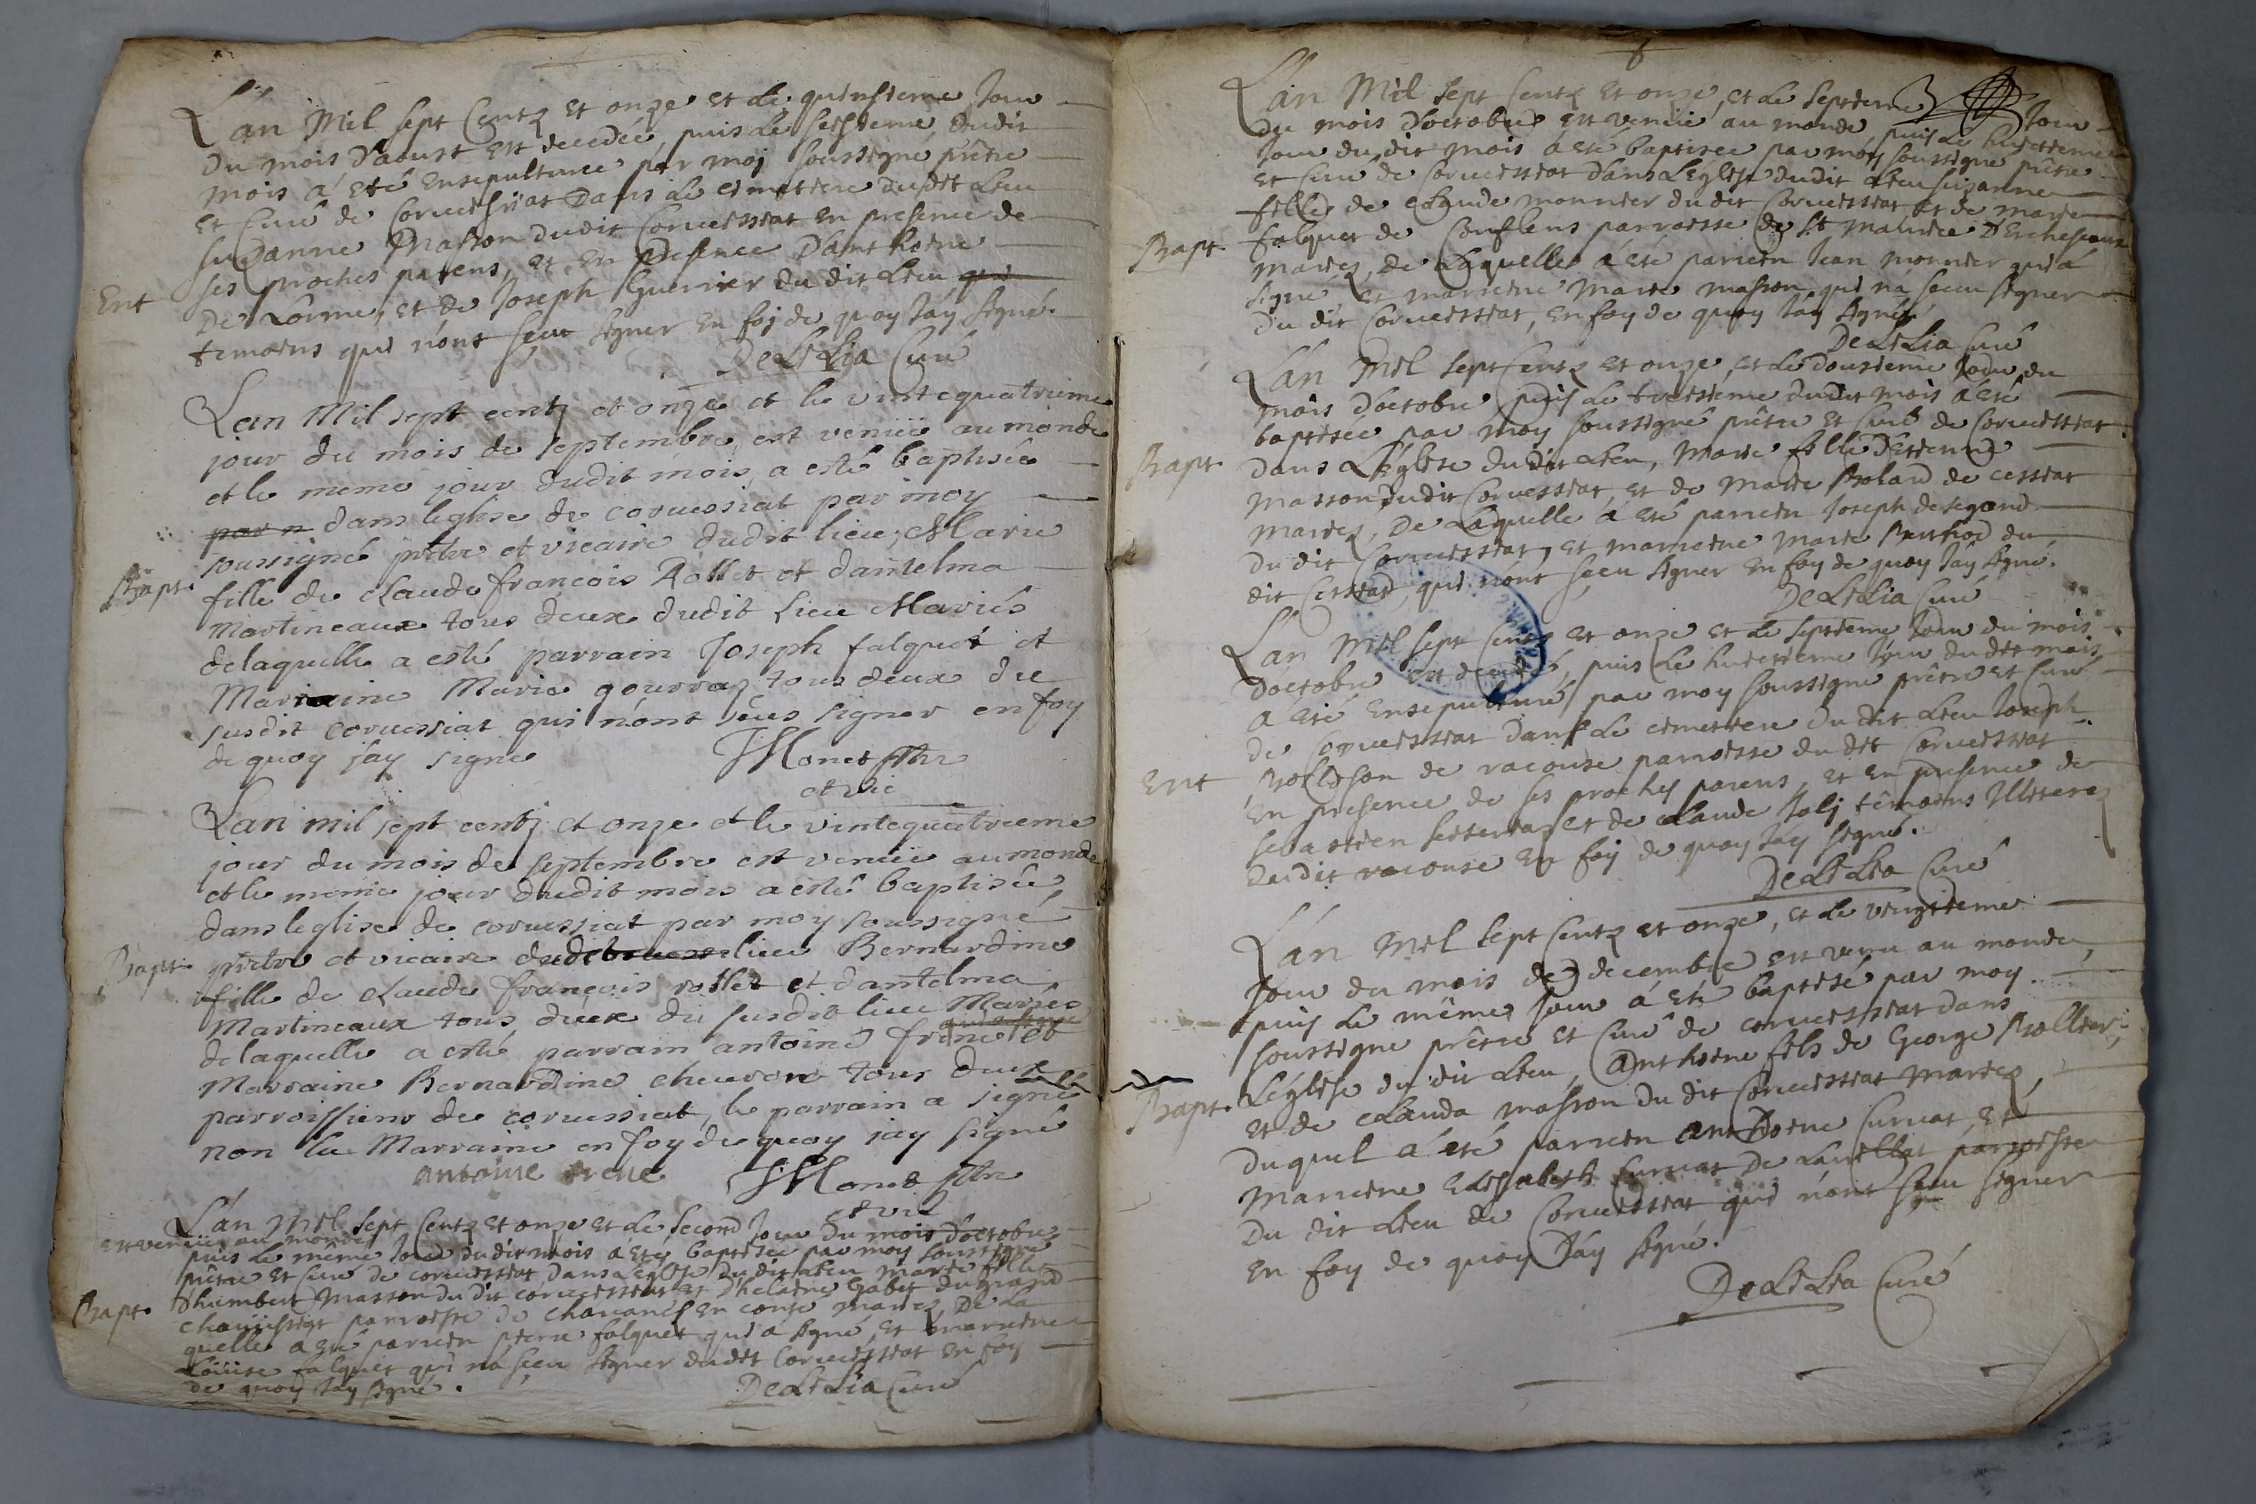 L'an Mil sept Centz et onze et Le quinsieme Jour
du mois D'aoust est decedée puis Le seisieme dudit
mois á eté Ensepulturee par moj soussigné prêtre
et Curé de Coruessiat Dans Le cimetiere dudit Lieu
suzanne Masson dudit Coruessiat en presence de
ses proches parens, et en presence D'anthoine
Ent
De Lorme, et de Joseph Guerrier du dit Lieu qui
temoins qui n'ont sçeu signer en foj de quoy J'áy signé.
DeLiLia Curé
Lan Mil sept centz et onze et le vintequatrieme
jour du mois de septembre est venüe au monde
et le meme jour dudit mois a esté baptisée
par n dans leglise de coruessiat par moy
soussigné prêtre et vicaire dudit lieu, Marie
Bapt.
fille de claude françois Rollet et dantelma
Martineaux tous deux dudit Lieu Mariés
delaquelle a esté parrain Joseph falquet et
Marraine Marie gourraz tous deux du
susdit coruessiat qui n'ont sçeus signer en foy
de quoy jay signé
JMonet ptre
et vic
Lan mil sept centz et onze et le vintequatrieme
jour du mois de septembre est venüe au monde
et le meme jour dudit mois a esté baptisée
dans leglise de coruessiat par moy soussigné
Bapt.
prêtre et vicaire dudit lieu Bernardine
fille de claude françois rollet et dantelma
Martineaux tous deux du susdit lieu Mariés
delaquelle a esté parrain antoine frene et
Marraine Bernardine cheuron tous deux
parroissiens de coruessiat, le parrain a signé
non la Marraine en foy de quoy jay signé
antoine frene JMonet ptre
et vic
L'án Mil sept Centz et onze et Le second Jour du mois d'octobre
est venüe au monde
puis Le même Jour dudit mois á eté baptisée par moy soussigné
prêtre et Curé de coruessiat dans L'église du dit Lieu marie fille
Bapt.
d'humbert Masson du dit coruessiat et d'helaine Gabet du grand
chauissiat parroisse de chauanes en conte mariez, De La
quelle a eté parrein pierre falquet qui a signé, et marreine
Loüise falquet qui n'a sçeu signer dudit Coruessiat en foy
de quoy J'ay signé.
DeLiLia Curé
8
L'án Mil sept Centz et onze, et Le septieme Jour
du mois D'octobre est venüe au monde puis Le huictieme
Jour du dit mois á eté baptisee par moy soussigné prêtre
et Curé de Coruessiat Dans L'église dudit Lieu suzanne
fille de claude monnier du dit Coruessiat et de marie
Bapt.
falquet de Conflens parroisse de st maurice D'Echeseaux
mariez, de Laquelle á eté parrein Jean monnier qui á
signé et marreine Marie masson qui n'a sceu signer
du dit Coruessiat, en foy de quoy J'ay signé
DeLiLia Curé
L'án Mil sept Centz et onze, et Le Dousieme Jour du
mois D'octobre puis Le treisieme dudit mois á eté
baptisée par moy soussigné prêtre et Curé de Coruessiat
Bapt.
Dans L'église du dit Lieu, Marie fille d'Etienne
Masson dudit Coruessiat, et de Marie Bolard de cessiat
mariez, De Laquelle á eté parrein Joseph de segond
du dit Coruessiat, et marreine marie Berthod du
dit Cessiat, qui n'ont sçeu signer En foy de quoy J'ay signé.
DeLiLia Curé
L'án Mil sept Centz et onze et Le septieme Jour du mois
D'octobre est decedé, puis Le huictieme Jour du dit mois
á eté Ensepulturé par moy soussigné prêtre et Curé
de Coruessiat dans Le cimetiere du dit Lieu Joseph
Ent
de racouse parroisse du dit Coruessiat
en presence de ses proches parens, et en presence de
sebastien et de claude Jolj têmoins Illiterez
du dit racouse En foy de quoy J'ay signé.
DeLiLia Curé
L'án Mil sept Centz et onze, et Le vingtieme
Jour du mois de decembre est venu au monde,
puis Le même Jour á eté baptisé par moy
soussigné prêtre et Curé de coruessiat dans
Bapt.
L'église du dit Lieu, Anthoine fils de George Bollier,
et de clauda masson du dit Coruessiat Mariez,
duquel á eté parrein Anthoine Curuat, et
Marreine Elisabeth Curuat De Lauellat parroisse
du dit Lieu de Coruessiat qui n'ont sçeu signer
en foy de quoy J'áy signé.
DeLiLia Curé